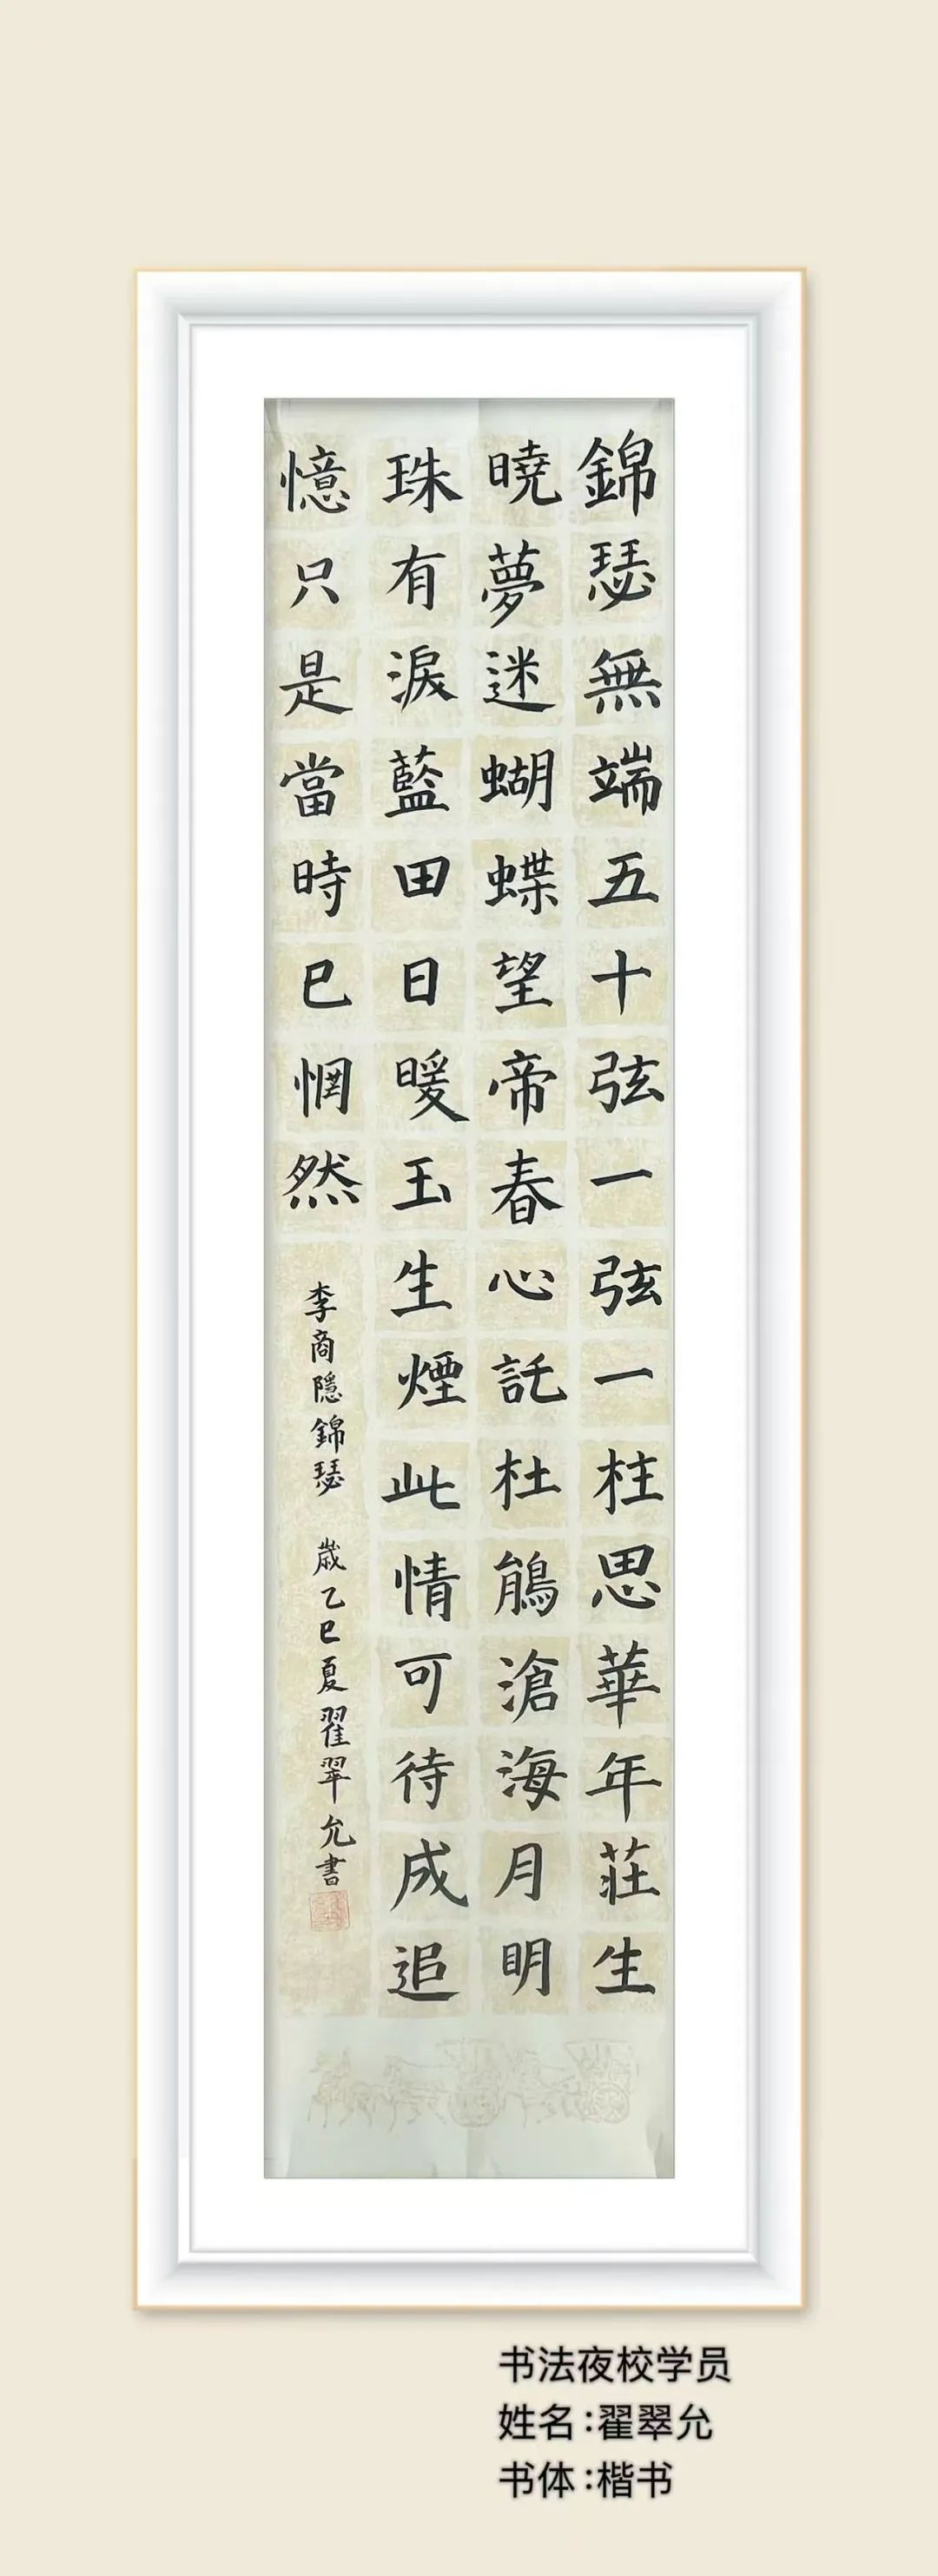 錦瑟無端五十弦一弦一柱思華年莊生
曉夢迷蝴蝶望帝春心託杜鵑滄海月明
珠有淚藍田日暖玉生煙此情可待成追
憶只是當時已惘然
李商隱錦瑟 歲乙巳夏翟翠允書
书法夜校学员
姓名:翟翠允
书体:楷书